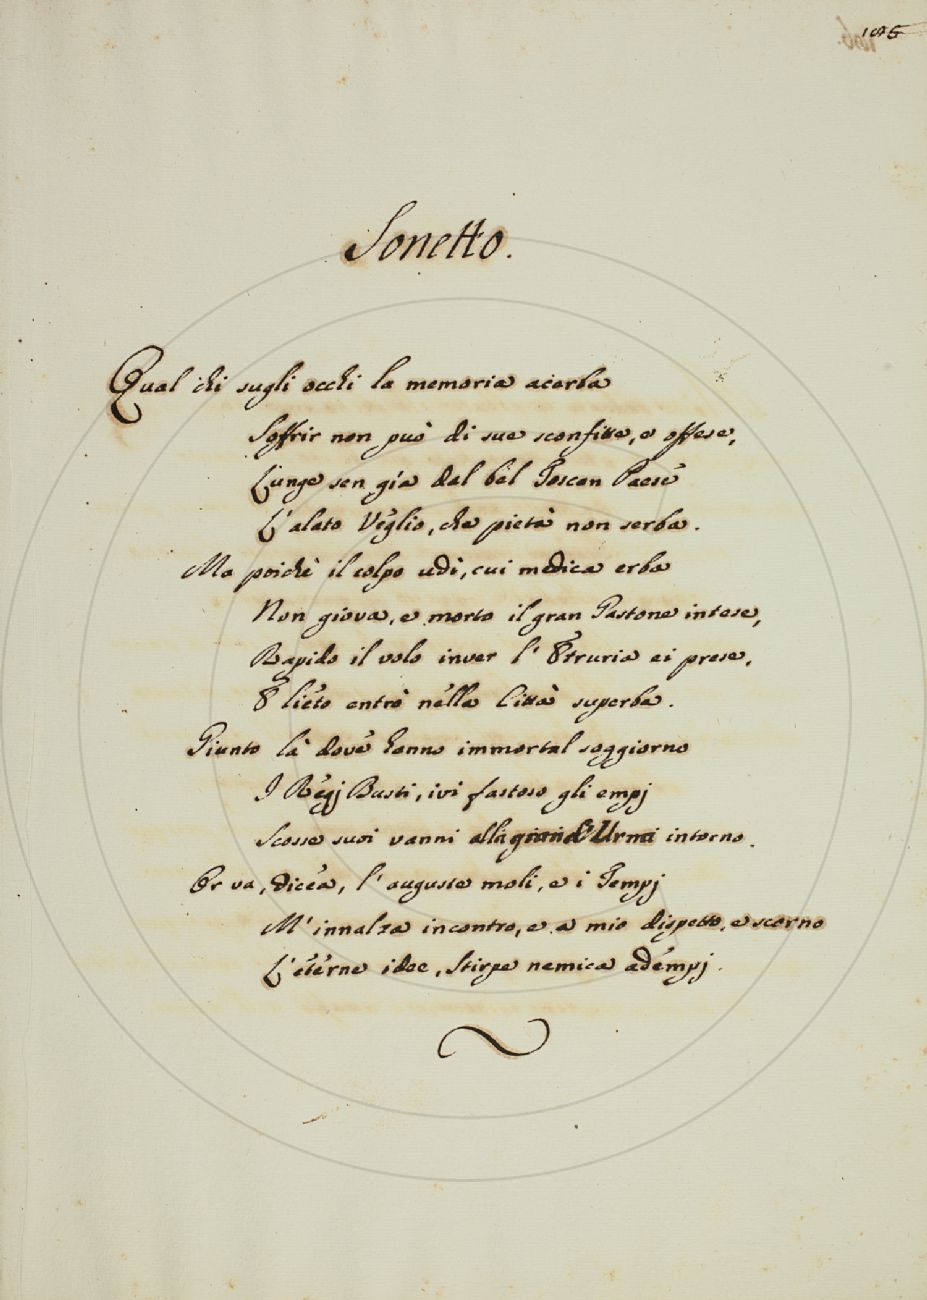 Sonetto.
Qual chi sugli occhi la memoria acerba
Soffrir non può di sue sconfitte, e offese,
Lunge sen gía dal bel Toscan Paese
L'alato Veglio, che pietà non serba.
Ma poichè il colpo udì, cui medica erba
Non giova, e morto il gran Gastone intese,
Rapido il volo inver l'Etruria ei prese,
E lieto entrò nella Città superba.
Giunto là dove hanno immortal soggiorno
I Regj Busti, ivi fastoso gli empj
Scosse suoi vanni alla grand'Urna intorno.
Or va, dicea, l'auguste moli, e i Tempj
M'innalza incontro, e a mio dispetto, e scorno
L'eterne idee, Stirpe nemica adempj.